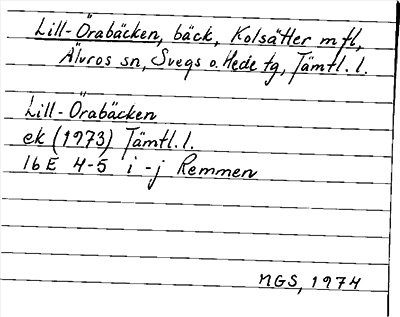 Lill-Örabäcken, bäck, Kolsätter m fl,
Älvros sn, Svegs o. Hede tg, Jämtl. l.
Lill-Örabäcken
ek (1973) Jämtl. l.
16 E 4-5 i-j Remmen
MGS, 1974